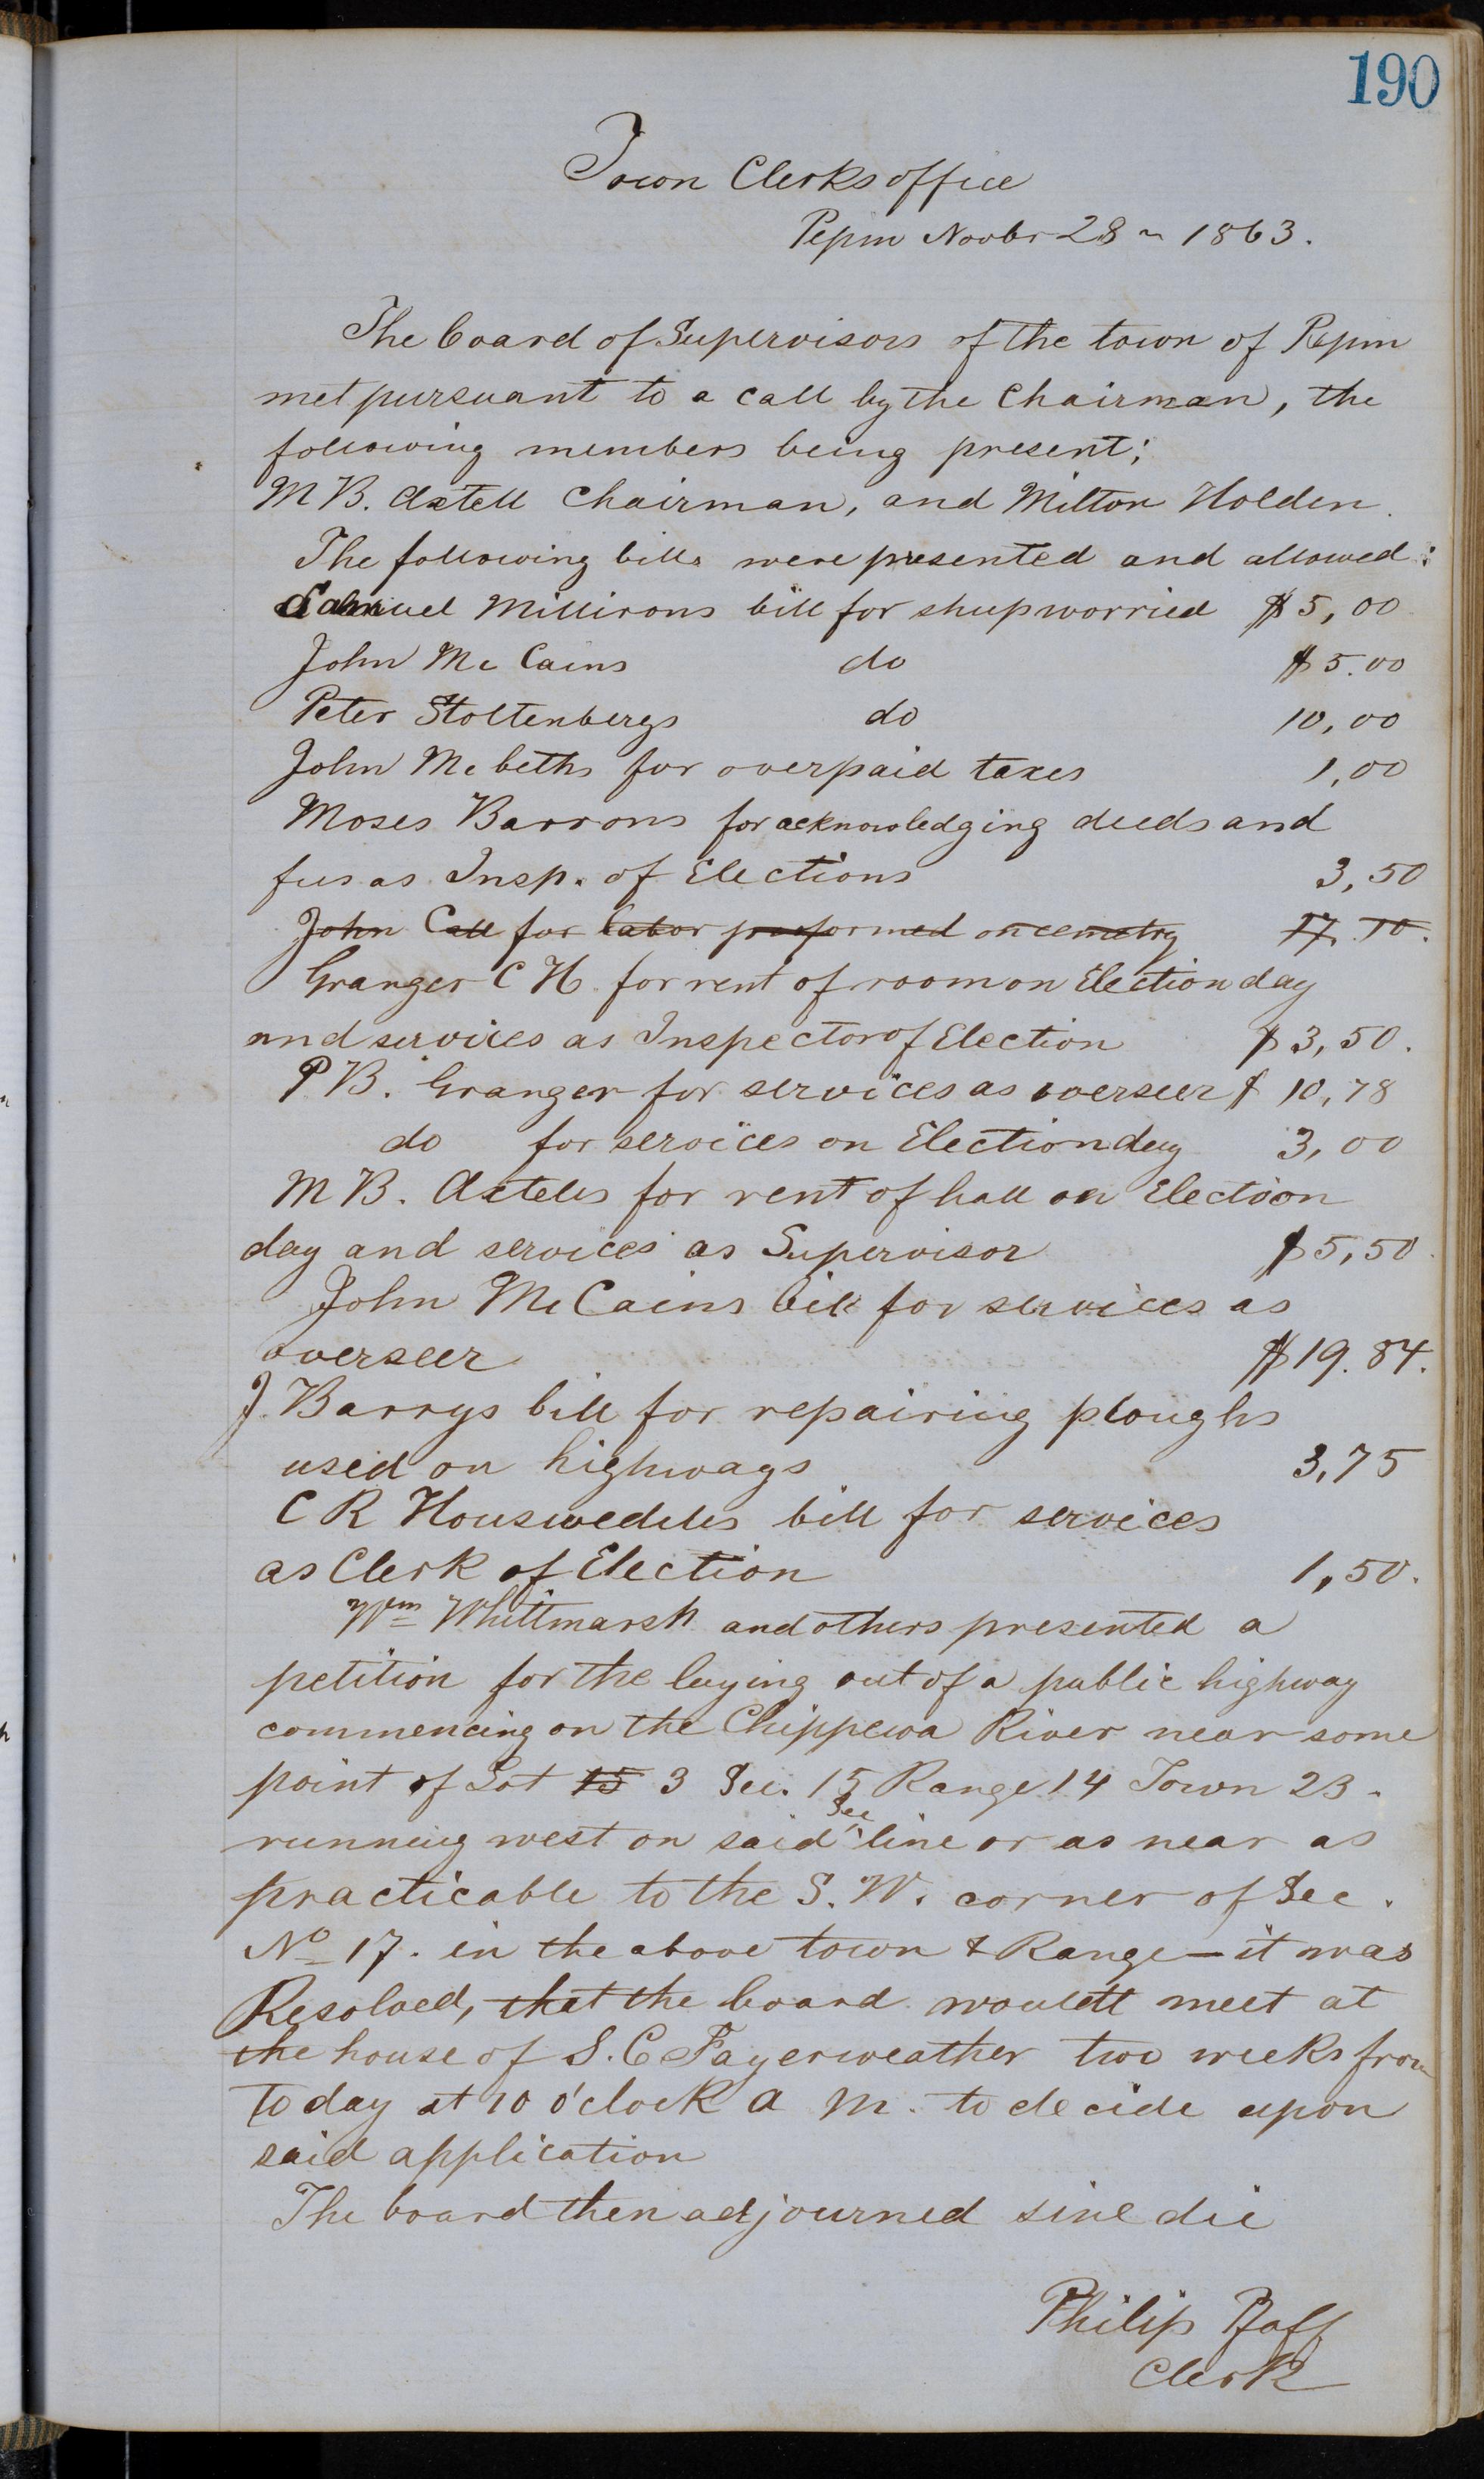 190
Town Clerks office
Pepin Novbr 28 ~ 1863.
The board of Supervisors of the town of Pepin
met pursuant to a call by the Chairman, the
following members being present;
M B. Axtell Chairman, and Milton Holden.
The following bills were presented and allowed:
Samuel Millirons bill for sheep worried $5,00
John Mc Cains do $5.00
Peter Stoltenbergs do 10,00
John Mc beths for overpaid taxes 1,00
Moses Barrons for acknowledging deeds and
fees as Insp. of Elections 3,50
John Call for labor preformed on cemetry 17.10.
Granger C H. for rent of room on Election day
and services as Inspector of Election $3,50.
P B. Granger for services as overseer $ 10,78
do for services on Election day 3,00
M B. Axtells for rent of hall on Election
day and services as Supervisor $5,50.
John McCains bill for services as
overseer $19.84.
J. Barrys bill for repairing ploughs
used on highways 3,75
C R Houswedeles bill for services
as Clerk of Election 1,50.
Wm Whittmarsh and others presented a
petition for the laying out of a public highway
commencing on the Chippewa River near some
point of Lot 15 3 Sec. 15 Range 14 Town 23.
running west on said Sec line or as near as
practicable to the S. W. corner of Sec.
No 17. in the above town & Range — it was
Resolved, that the board wouldt meet at
the house of S. C Fayerweather two weeks from
to day at 10 o'clock A M. to decide upon
said application
The board then adjourned sine die
Philip Pfaff
Clerk